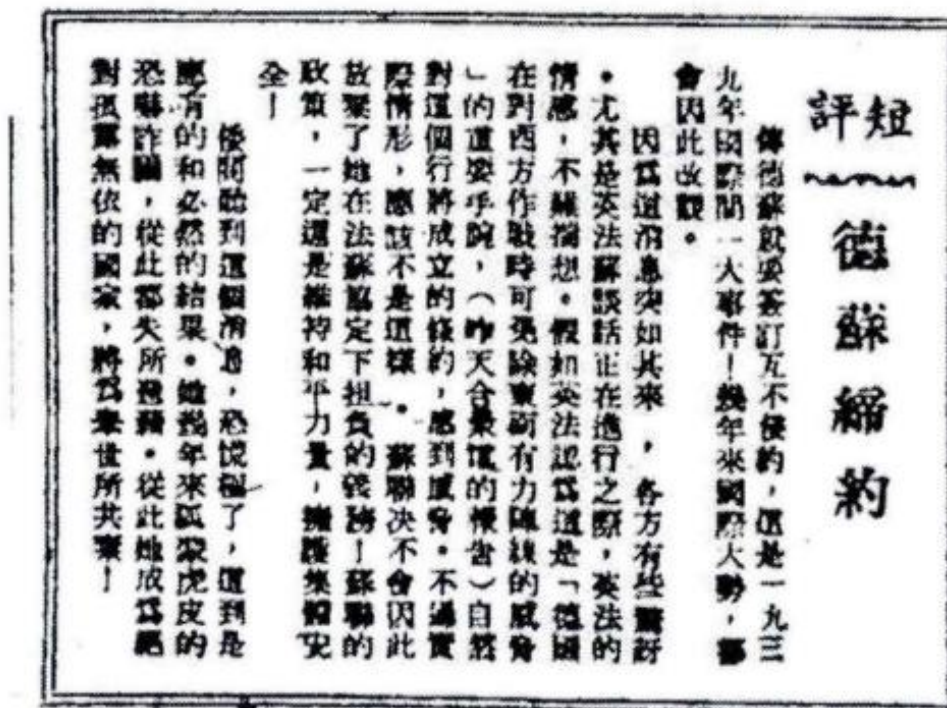 短評
德蘇締約
傳德蘇就要簽訂互不侵約，這是一九三
九年國際間一大事件！幾年來國際大勢，都
會因此改觀。
因爲這消息突如其來，各方有些驚訝
。尤其是英法蘇談話正在進行之際，英法的
情感，不難揣想。假如英法認爲這是「德國
在對西方作戰時可免除東面有力陣線的威脅
」的重要手腕，（昨天合衆電的報吿）自然
對這個行將成立的條約，感到威脅。不過實
際情形，應該不是這樣。蘇聯决不會因此
放棄了她在法蘇協定下担負的義務！蘇聯的
政策，一定還是維持和平力量，擁護集體安
全！
倭間聽到這個消息，恐慌極了，這到是
應有的和必然的結果。她幾年來狐假虎皮的
恐嚇詐騙，從此都失所憑藉。從此她成爲絕
對孤露無依的國家，將爲擧世所共棄！